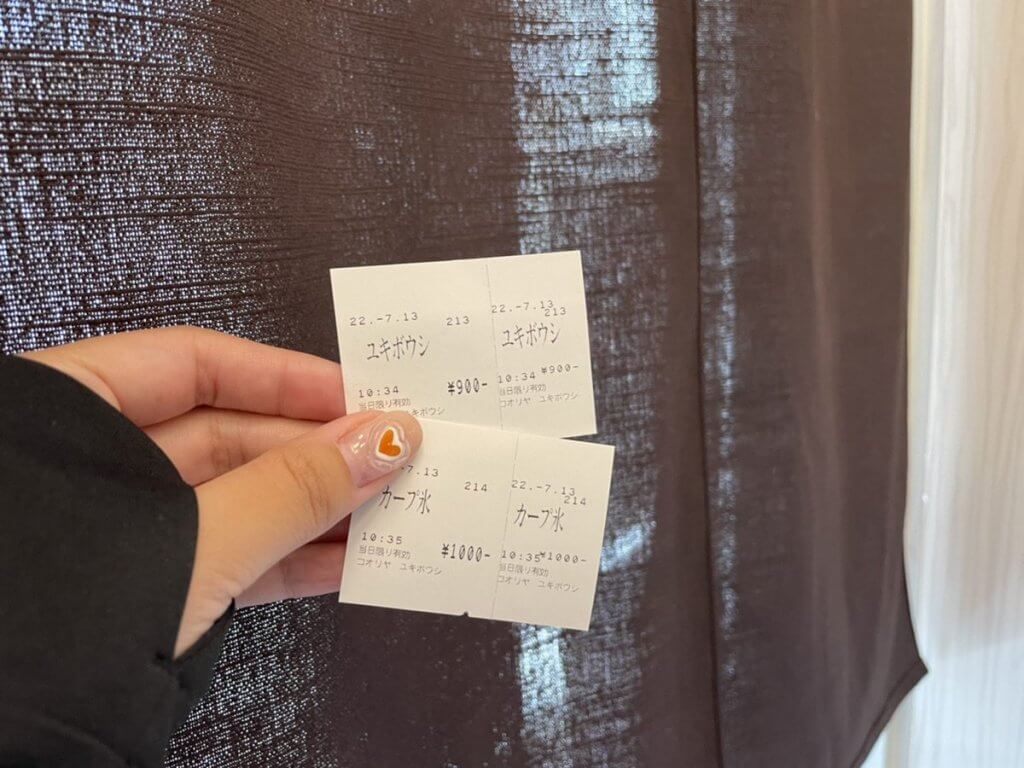 22.-7.13 213
ユキボウシ
10:34 ¥900-
当日限り有効
ユキボウシ
22.-7.13
213
ユキボウシ
10:34 ¥900-
当日限り有効
コオリヤ ユキボウシ
-7.13 214
カープ氷
10:35 ¥1000-
当日限り有効
コオリヤ ユキボウシ
22.-7.13
214
カープ氷
10:35 ¥1000-
当日限り有効
コオリヤ ユキボウシ